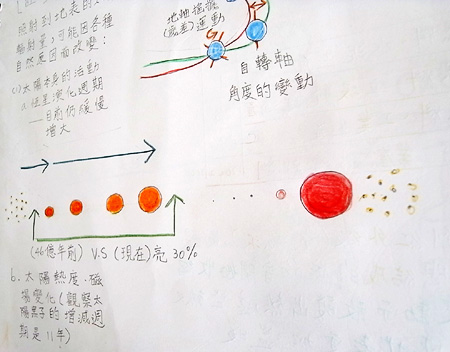 照射到地表的
輻射量,可能因各種
自然原因而改變:
(1)太陽本身的活動
a.恆星演化週期
—目前仍緩慢
增大
地軸搖擺
(歲差)運動
自轉軸
角度的變動
(46億年前) V.S (現在)亮 30%
b.太陽熱度、磁
場變化(觀察太
陽黑子的增減週
期是11年)